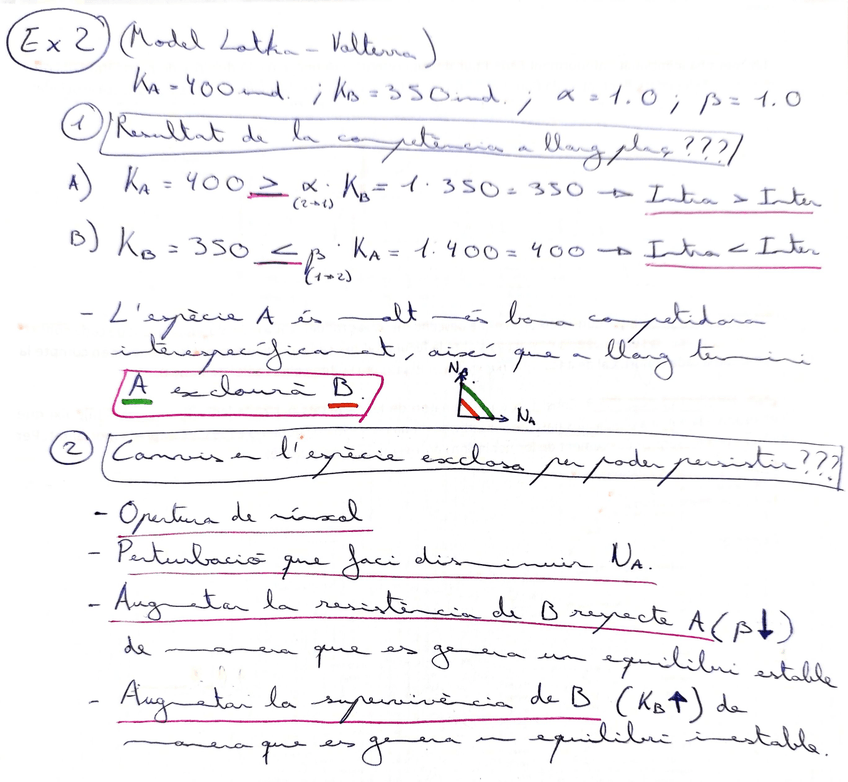 Ex 2 (Model Lotka-Volterra)
KA = 400 ind. ; KB = 350 ind. ; α = 1.0 ; β = 1.0
① Resultat de la competència a llarg plaç???
A) KA = 400 ≥ α · KB = 1 · 350 = 350 → Intra > Inter
(2→1)
B) KB = 350 ≤ β · KA = 1 · 400 = 400 → Intra < Inter
(1→2)
- L'espècie A és molt més bona competidora
interespecíficament, així que a llarg termini
A exclourà B.
NB
NA
② Canvis en l'espècie exclosa per poder persistir???
- Opertura de nínxol
- Perturbació que faci disminuir NA.
- Augmentar la resistència de B respecte A (β↓)
de manera que es genera un equilibri estable
- Augmentar la supervivència de B (KB↑) de
manera que es genera un equilibri inestable.